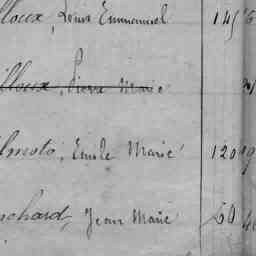 lloux, Louis Emmanuel 145
illoux, Pierre Marie
lmoto, Emile Marie 120
nchard, Jean Marie 60